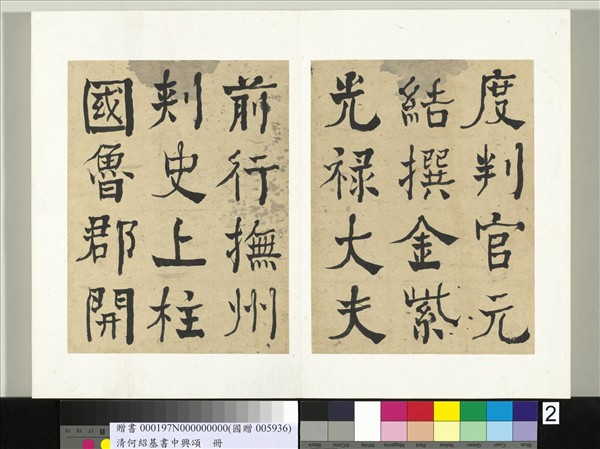 度判官元
結撰金紫
光禄大夫
前行撫州
刺史上柱
國魯郡開
贈書 000197N000000000(國贈 005936)
清何紹基書中興頌　冊
2